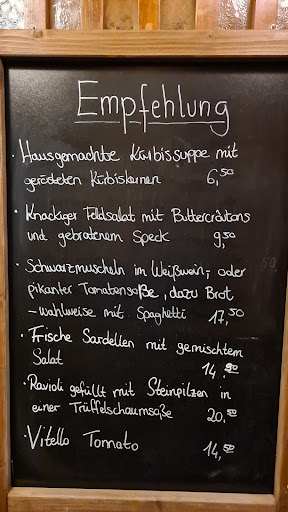 Empfehlung
· Hausgemachte Kürbissuppe mit
gerösteten Kürbiskernen 6,50
· Knackiger Feldsalat mit Buttercroûtons
und gebratenem Speck 9,50
· Schwarzmuscheln im Weißwein-, oder
pikanter Tomatensoße, dazu Brot
- wahlweise mit Spaghetti 17,50
· Frische Sardellen mit gemischtem
Salat 14,90
· Ravioli gefüllt mit Steinpilzen in
einer Trüffelschaumsoße 20,50
· Vitello Tonnato 14,50